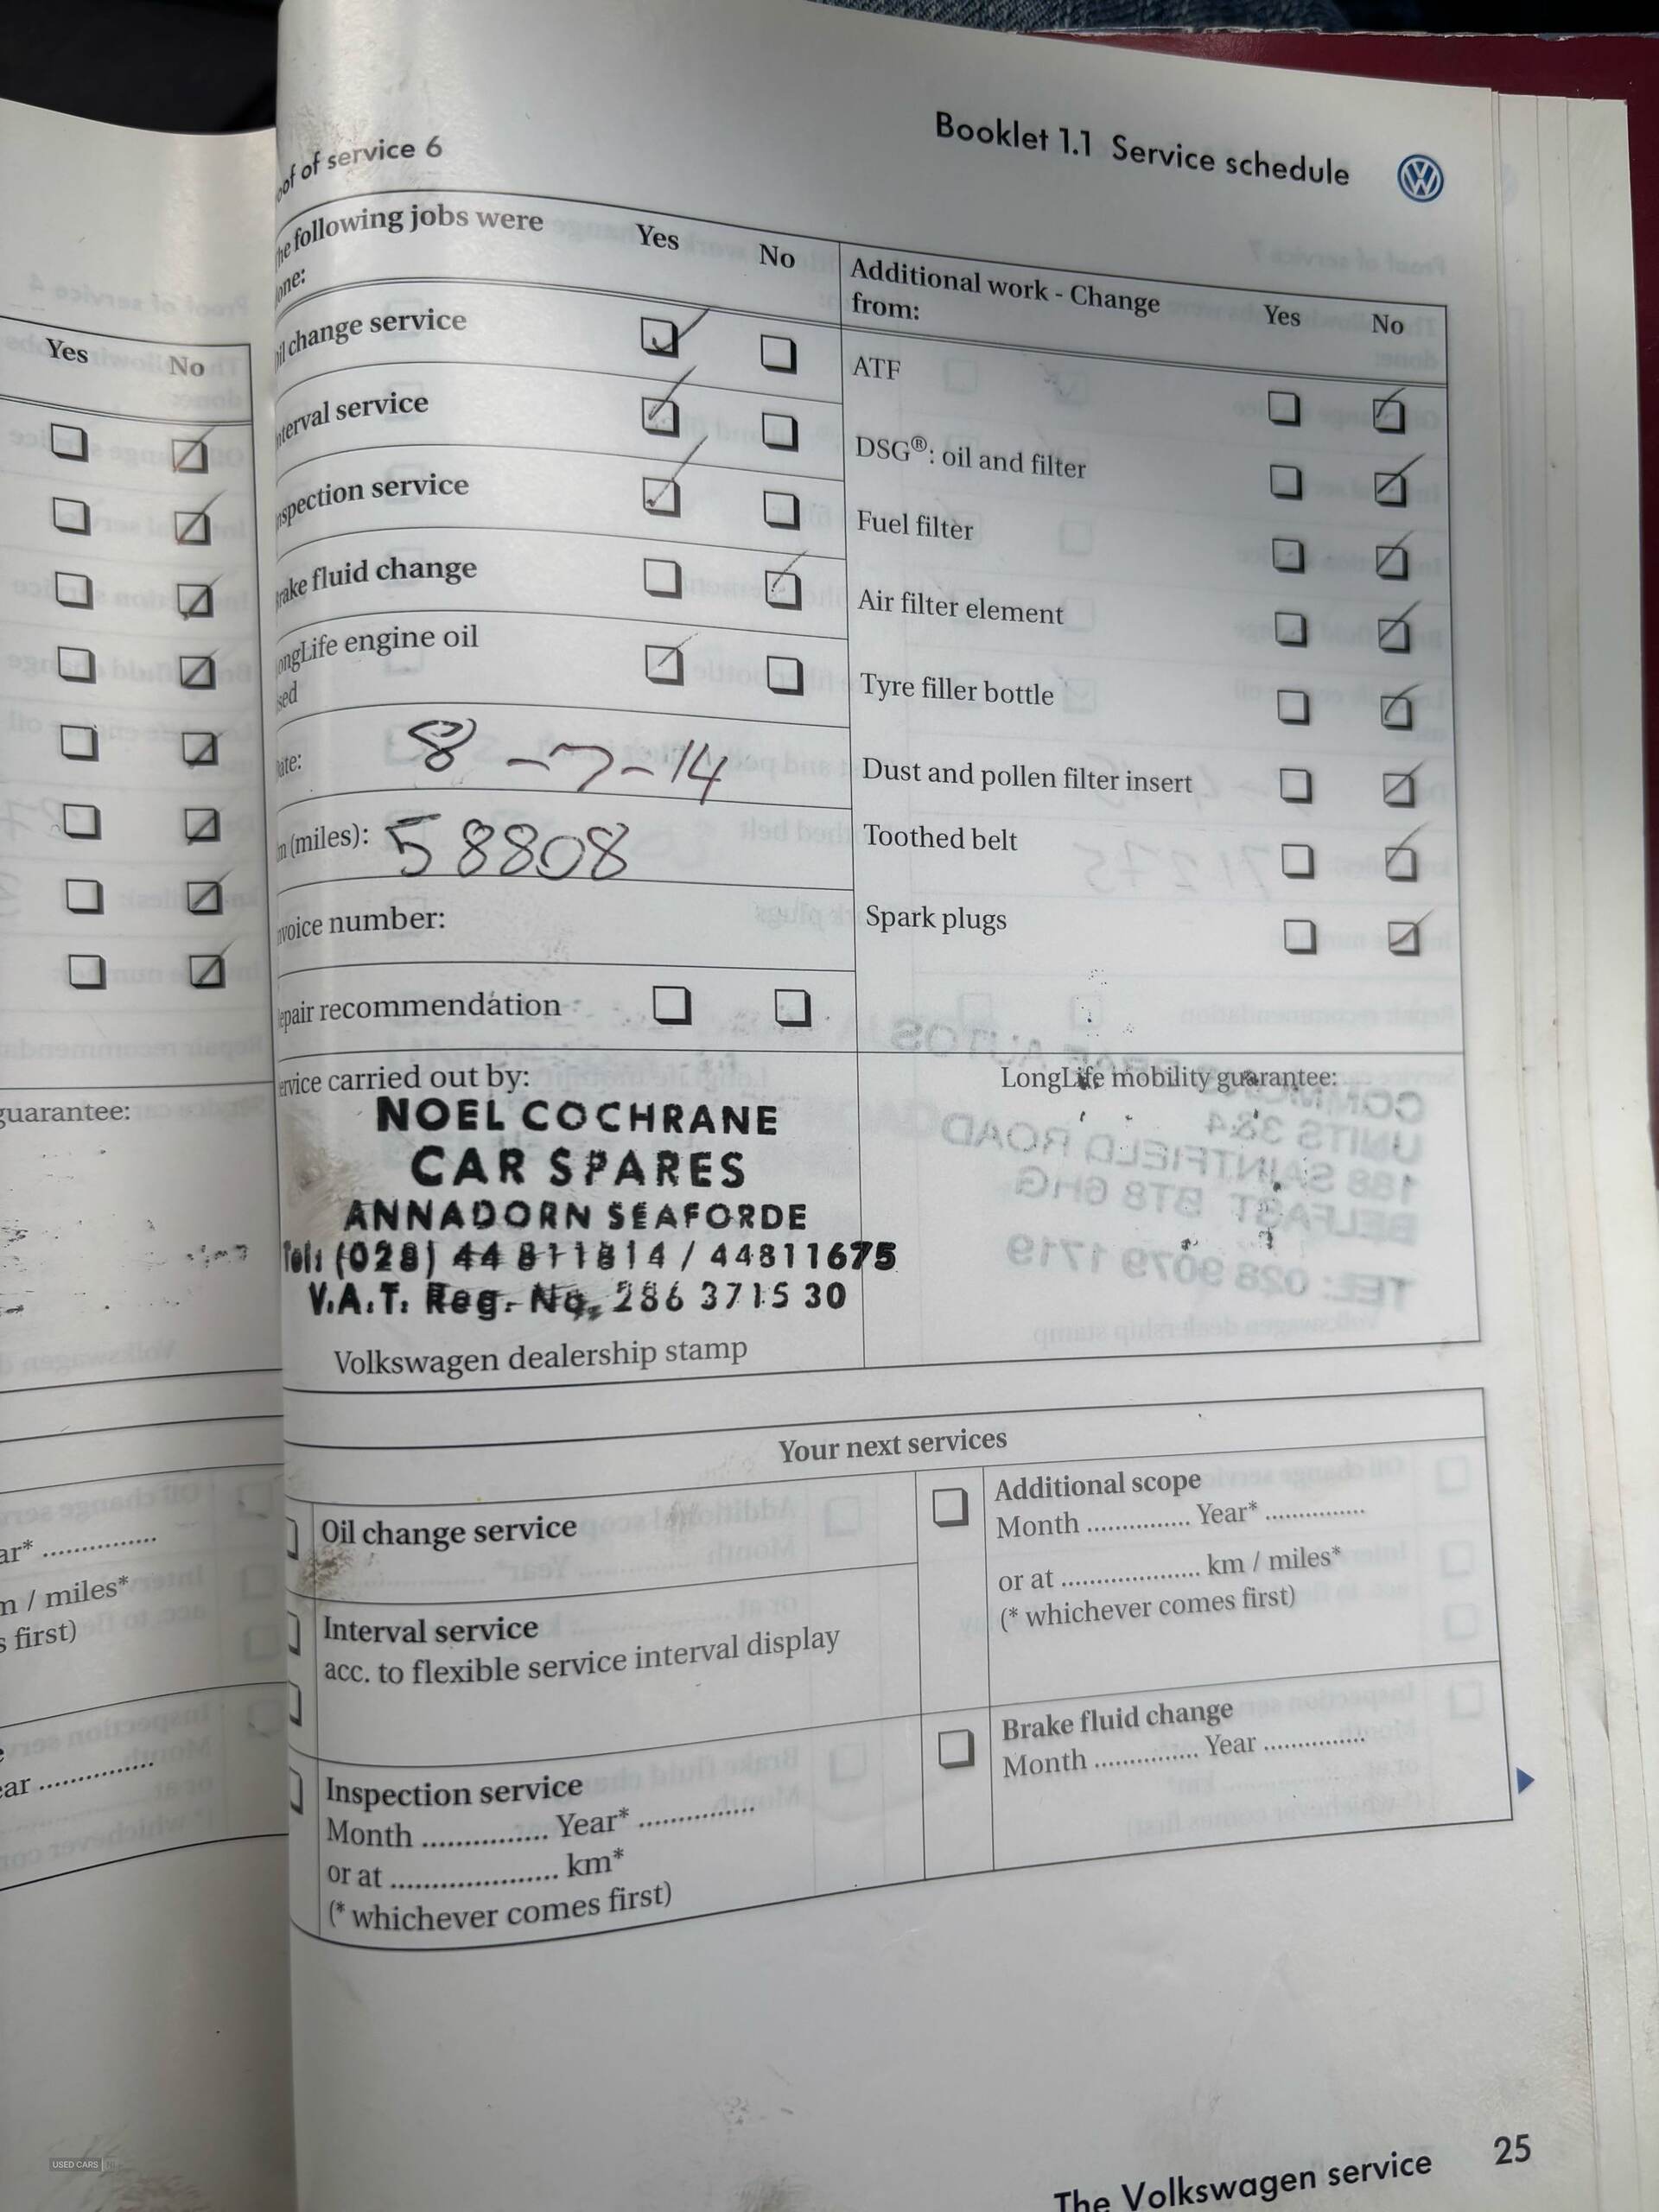 of of service 6
Booklet 1.1 Service schedule
following jobs were
Yes
No
Additional work - Change
from:
Yes
No
change service
ATF
service
DSG®: oil and filter
service
Fuel filter
fluid change
Air filter element
engine oil
Tyre filler bottle
8-7-14
Dust and pollen filter insert
(miles): 58808
Toothed belt
number:
Spark plugs
recommendation
carried out by:
LongLife mobility guarantee:
NOEL COCHRANE
CAR SPARES
ANNADORN SEAFORDE
Tel: (028) 44 811814 / 44811675
V.A.T. Reg. No. 286 3715 30
Volkswagen dealership stamp
Your next services
Oil change service
Additional scope
Month ............... Year* ...............
or at .................... km / miles*
(* whichever comes first)
Interval service
acc. to flexible service interval display
Brake fluid change
Month ............... Year ...............
Inspection service
Month ............... Year* ...............
or at .................... km*
(* whichever comes first)
The Volkswagen service 25
Yes
No
guarantee:
/ miles*
first)
USED CARS